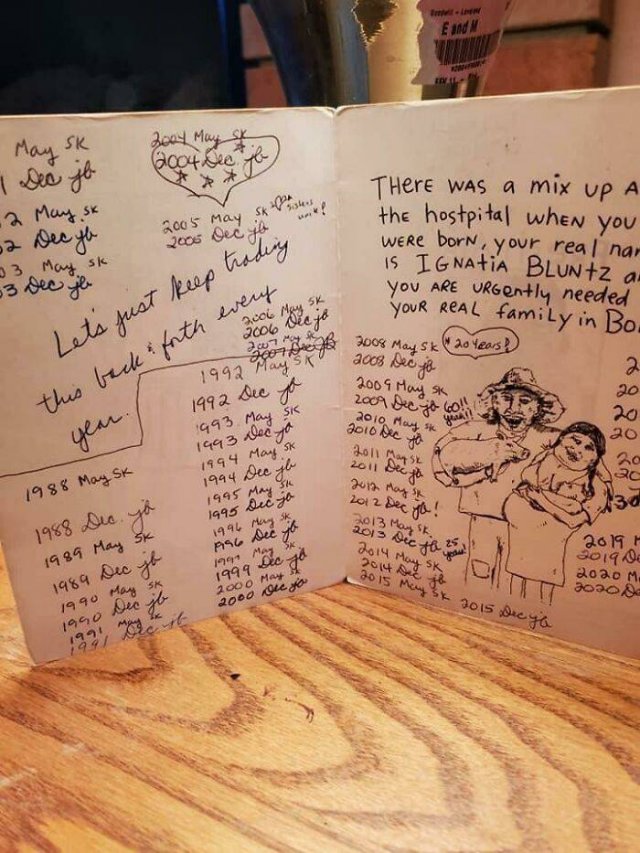 E and M
May SK
Dec jb
2 May SK
2 Dec jb
03 May SK
3 Dec jb
2004 May SK
2004 Dec jb
2005 May SK
2005 Dec jb
Let's just keep trading
this back & forth every
year.
2006 May SK
2006 Dec jb
1988 May SK
1988 Dec. jb
1989 May SK
1989 Dec jb
1990 May SK
1990 Dec jb
1991 May SK
1991 Dec jb
1992 May SK
1992 Dec jb
1993 May SK
1993 Dec jb
1994 May SK
1994 Dec jb
1995 May SK
1995 Dec jb
1996 May SK
1996 Dec jb
May SK
1999 Dec jb
2000 May SK
2000 Dec jb
THERE WAS a mix up A
the hostpital WHEN YOU
WERE borN, your real nam
IS IGNATIA BLUNTZ a
YOU ARE URGently needed
YOUR REAL family in Bo
2008 May SK
* 20 years!
2008 Dec jb
2009 May SK
2009 Dec jb
2010 May SK
2010 Dec jb
2011 May SK
2011 Dec jb
2012 May SK
2012 Dec jb!
2013 May SK
2013 Dec jb 25 years!
2014 May SK
2014 Dec jb
2015 May SK
2015 Dec jb
2
20
20
20
20
20
30
2019 M
2019 De
2020 M
2020 De